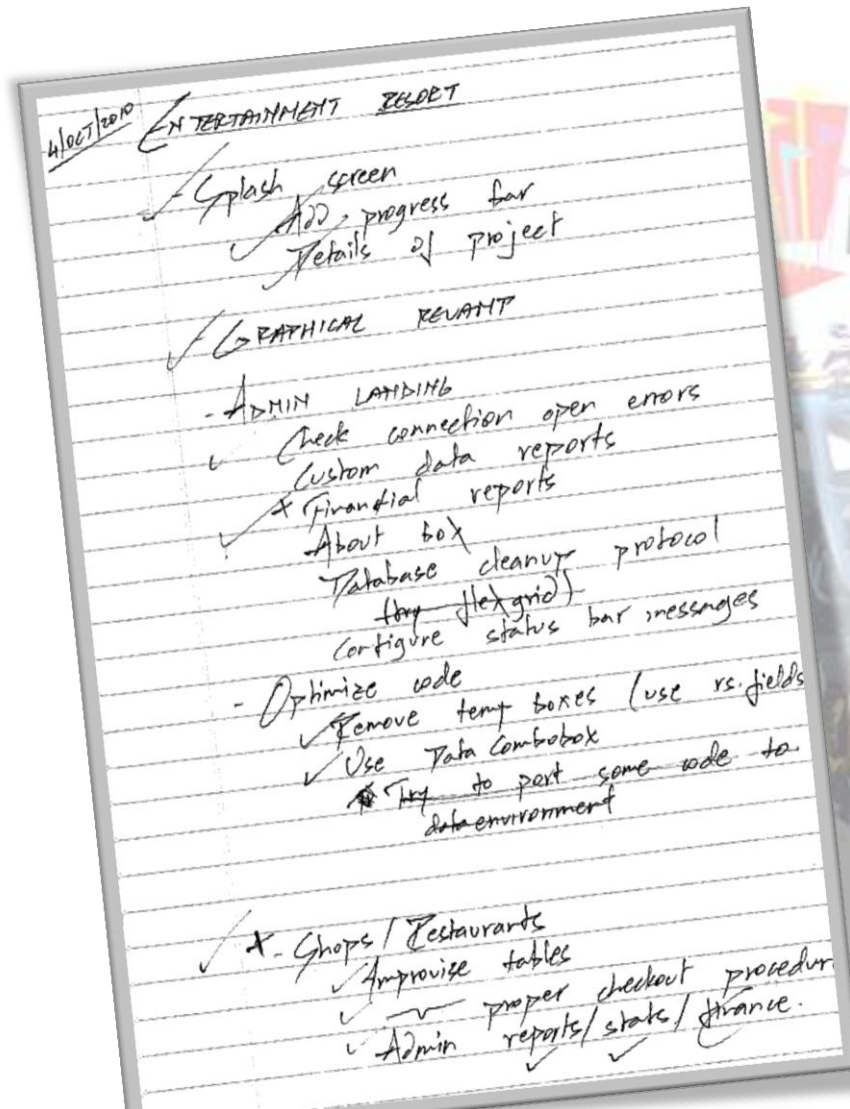 4/OCT/2010 ENTERTAINMENT RESORT
- Splash screen
Add progress bar
Details of project
GRAPHICAL REVAMP
- ADMIN LANDING
Check connection open errors
Custom data reports
* Financial reports
About box
Database cleanup protocol
(try flexgrid)
Configure status bar messages
- Optimize code
Remove temp boxes (use rs.fields
Use Data Combobox
Try to port some code to
dataenvironment
*- Shops / Restaurants
Improvise tables
proper checkout procedur
Admin reports/stats/finance.